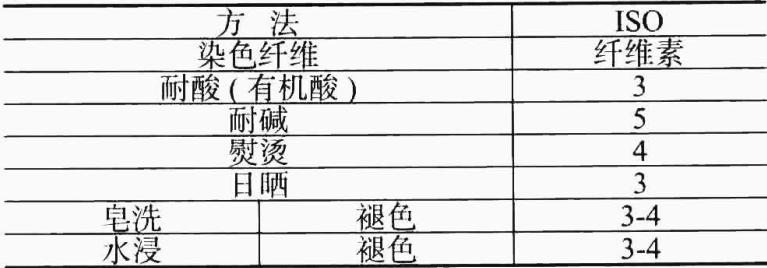 方 法 ISO
染色纤维 纤维素
耐酸(有机酸) 3
耐碱 5
熨烫 4
日晒 3
皂洗 褪色 3-4
水浸 褪色 3-4